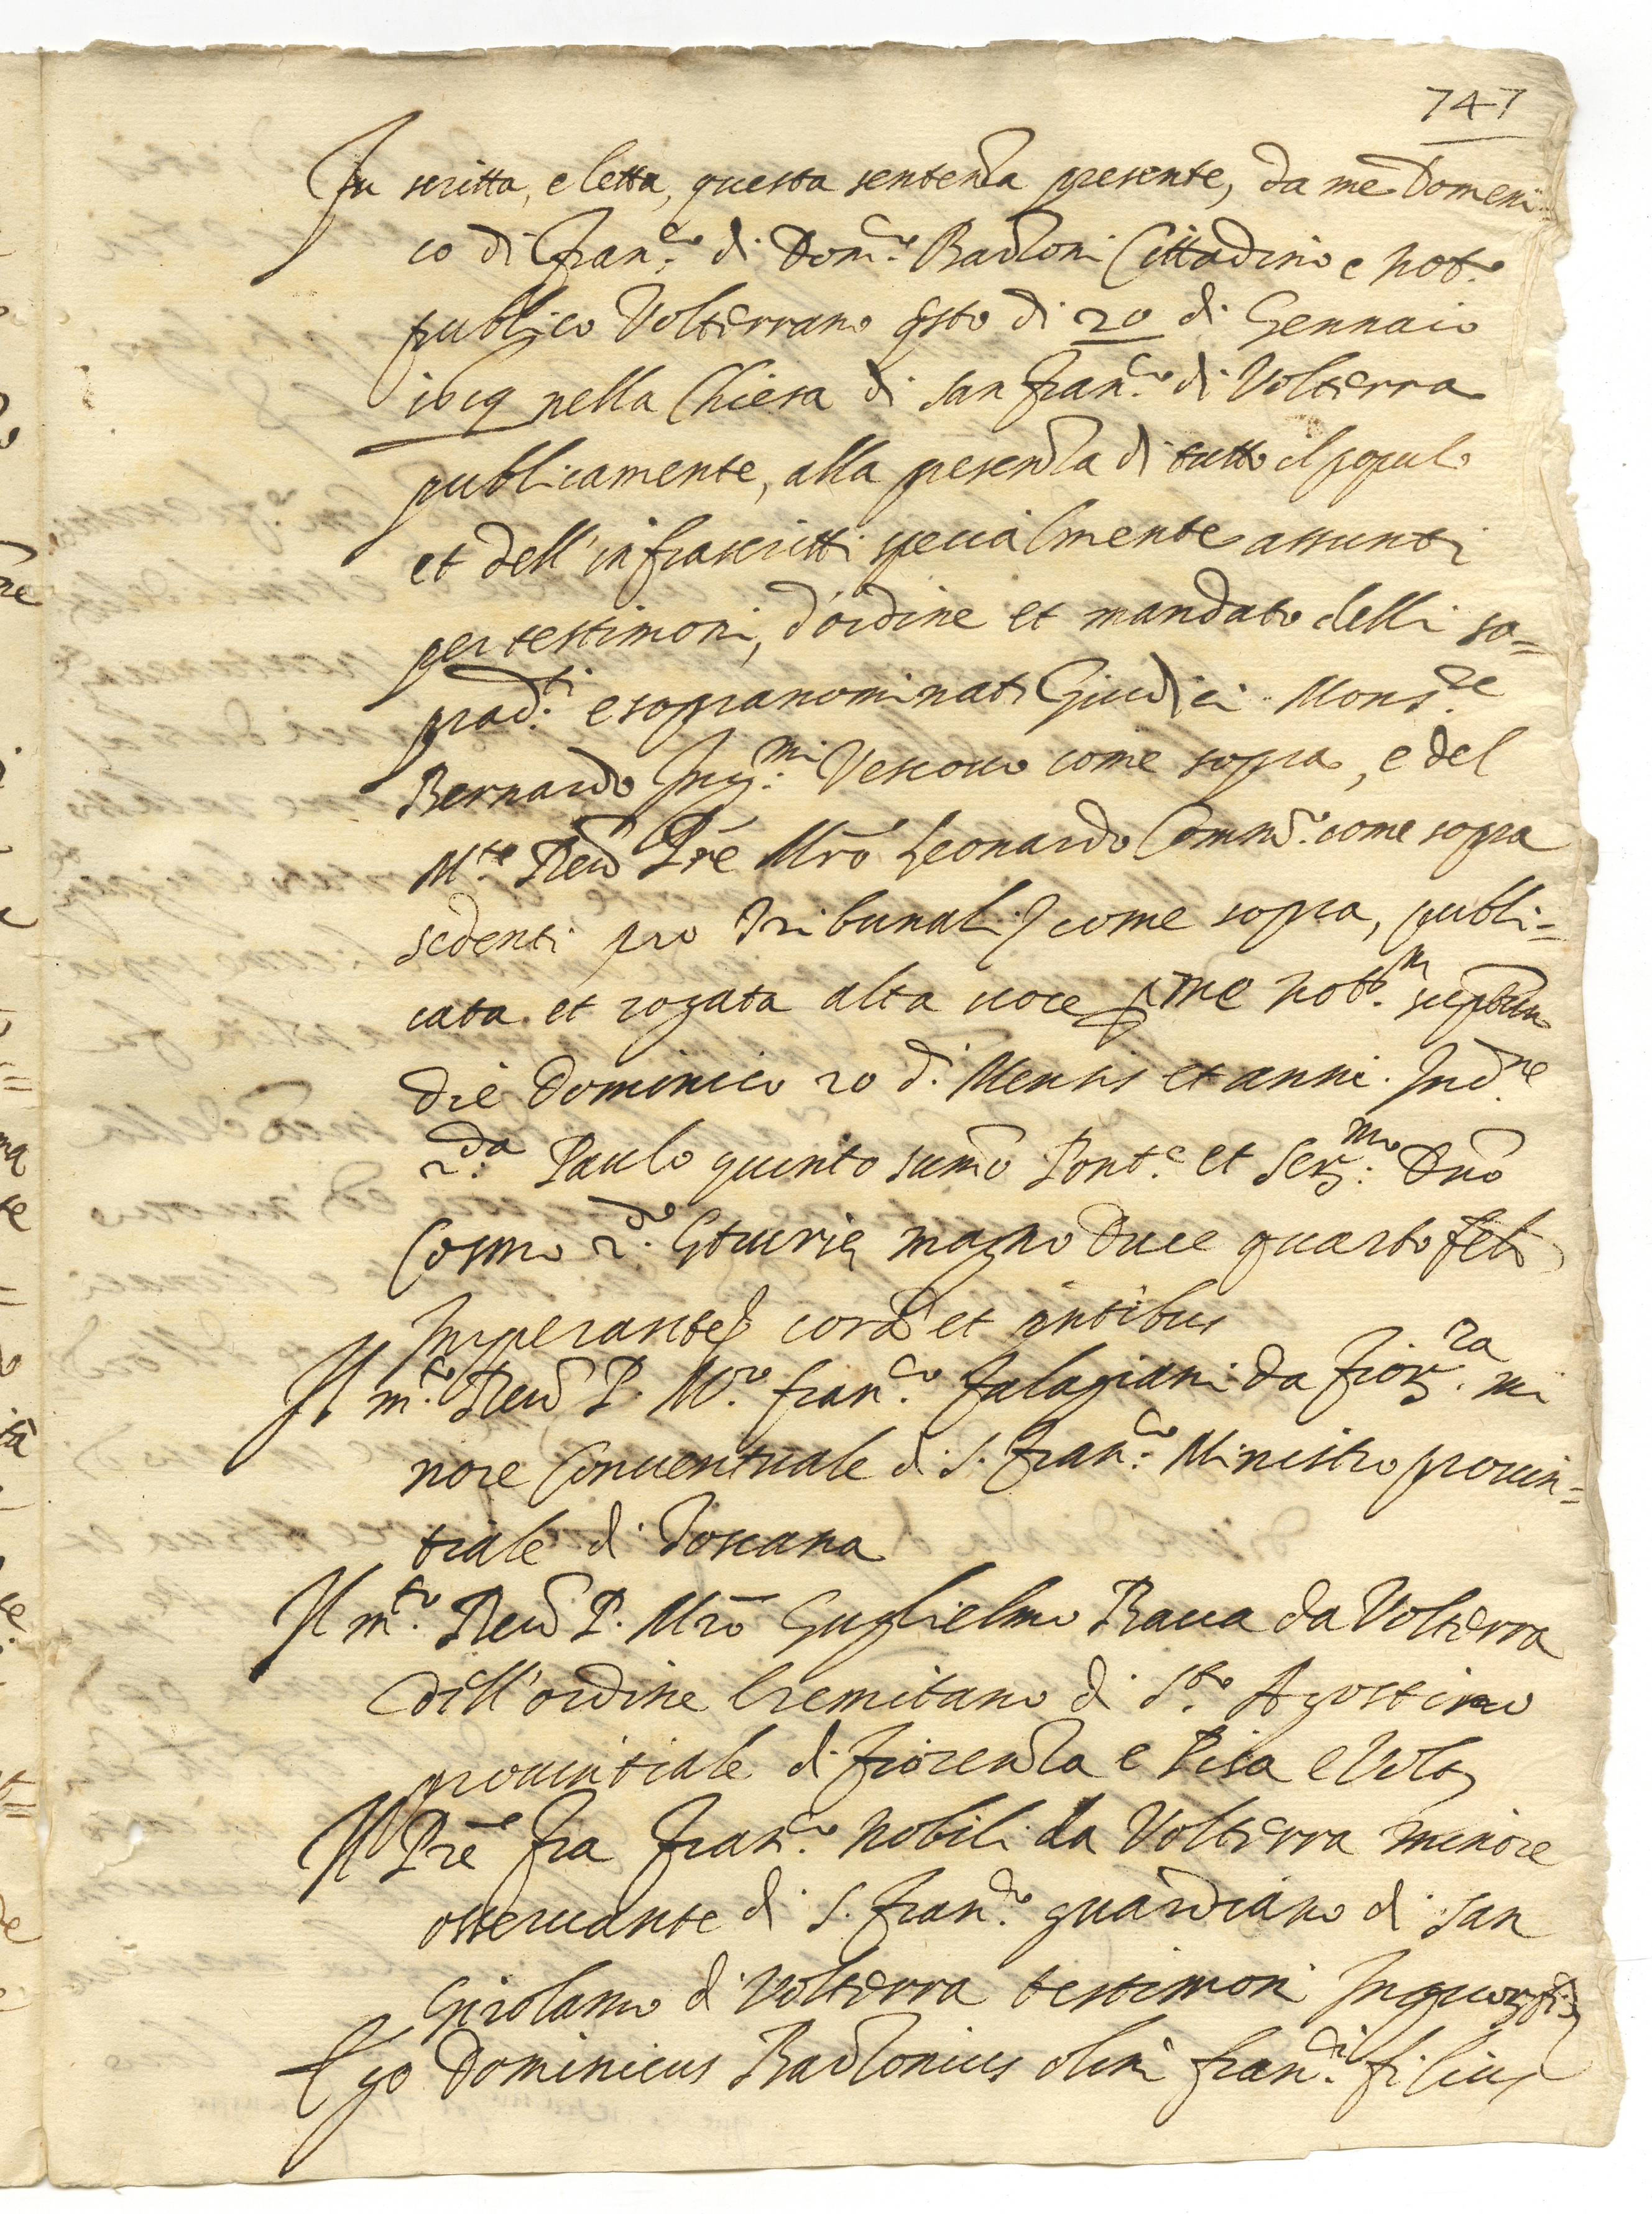 747
Fu scritta, e letta, questa sentenza presente, da me Domeni=
co di Fran.co di Dom.co Bardoni Cittadino e not.o
publico Volterrano qsto di 20 di Gennaio
1619 nella Chiesa di San Fran.co di Volterra
publicamente, alla presenza di tutto il popul.o
et dell'infrascritti specialmente assunti
per testimoni, d'ordine et mandato delli so=
prad.ti e sopranominati Giudici Mons.re
Bernardo Inq.mi Vescouo come sopra, e del
M.to Reu Pre Mro Leonardo Comm.o come sopra
sedenti pro Tribunali come sopra, publi=
cata et rogata alta uoce p me not.m
die Dominico 20 d. Mensis et anni. Ind.ne
2.da Paulo quinto sumo Pont.e et Ser.mo Dno
Cosmo 2.do Etrurię magno Duce quarto fel
Imperante corā et pntibus
Il m.to Reu P. M.ro Fran.co Falagiani da Fior.za mi
nore Conuentuale di S. Fran.co Ministro prouin=
tiale di Toscana
Il m.to Reu P. Mro Guglielmo Baua da Volterra
dell'ordine Eremitano di S.to Agostino
prouintiale di Fiorenza e Pisa e Volt
Il Pre fra Fran.co Nobili da Volterra minore
osseruante di S. Fran.co guardiano di San
Girolamo di Volterra testimoni
Ego Dominicus olim Fran.ci filius